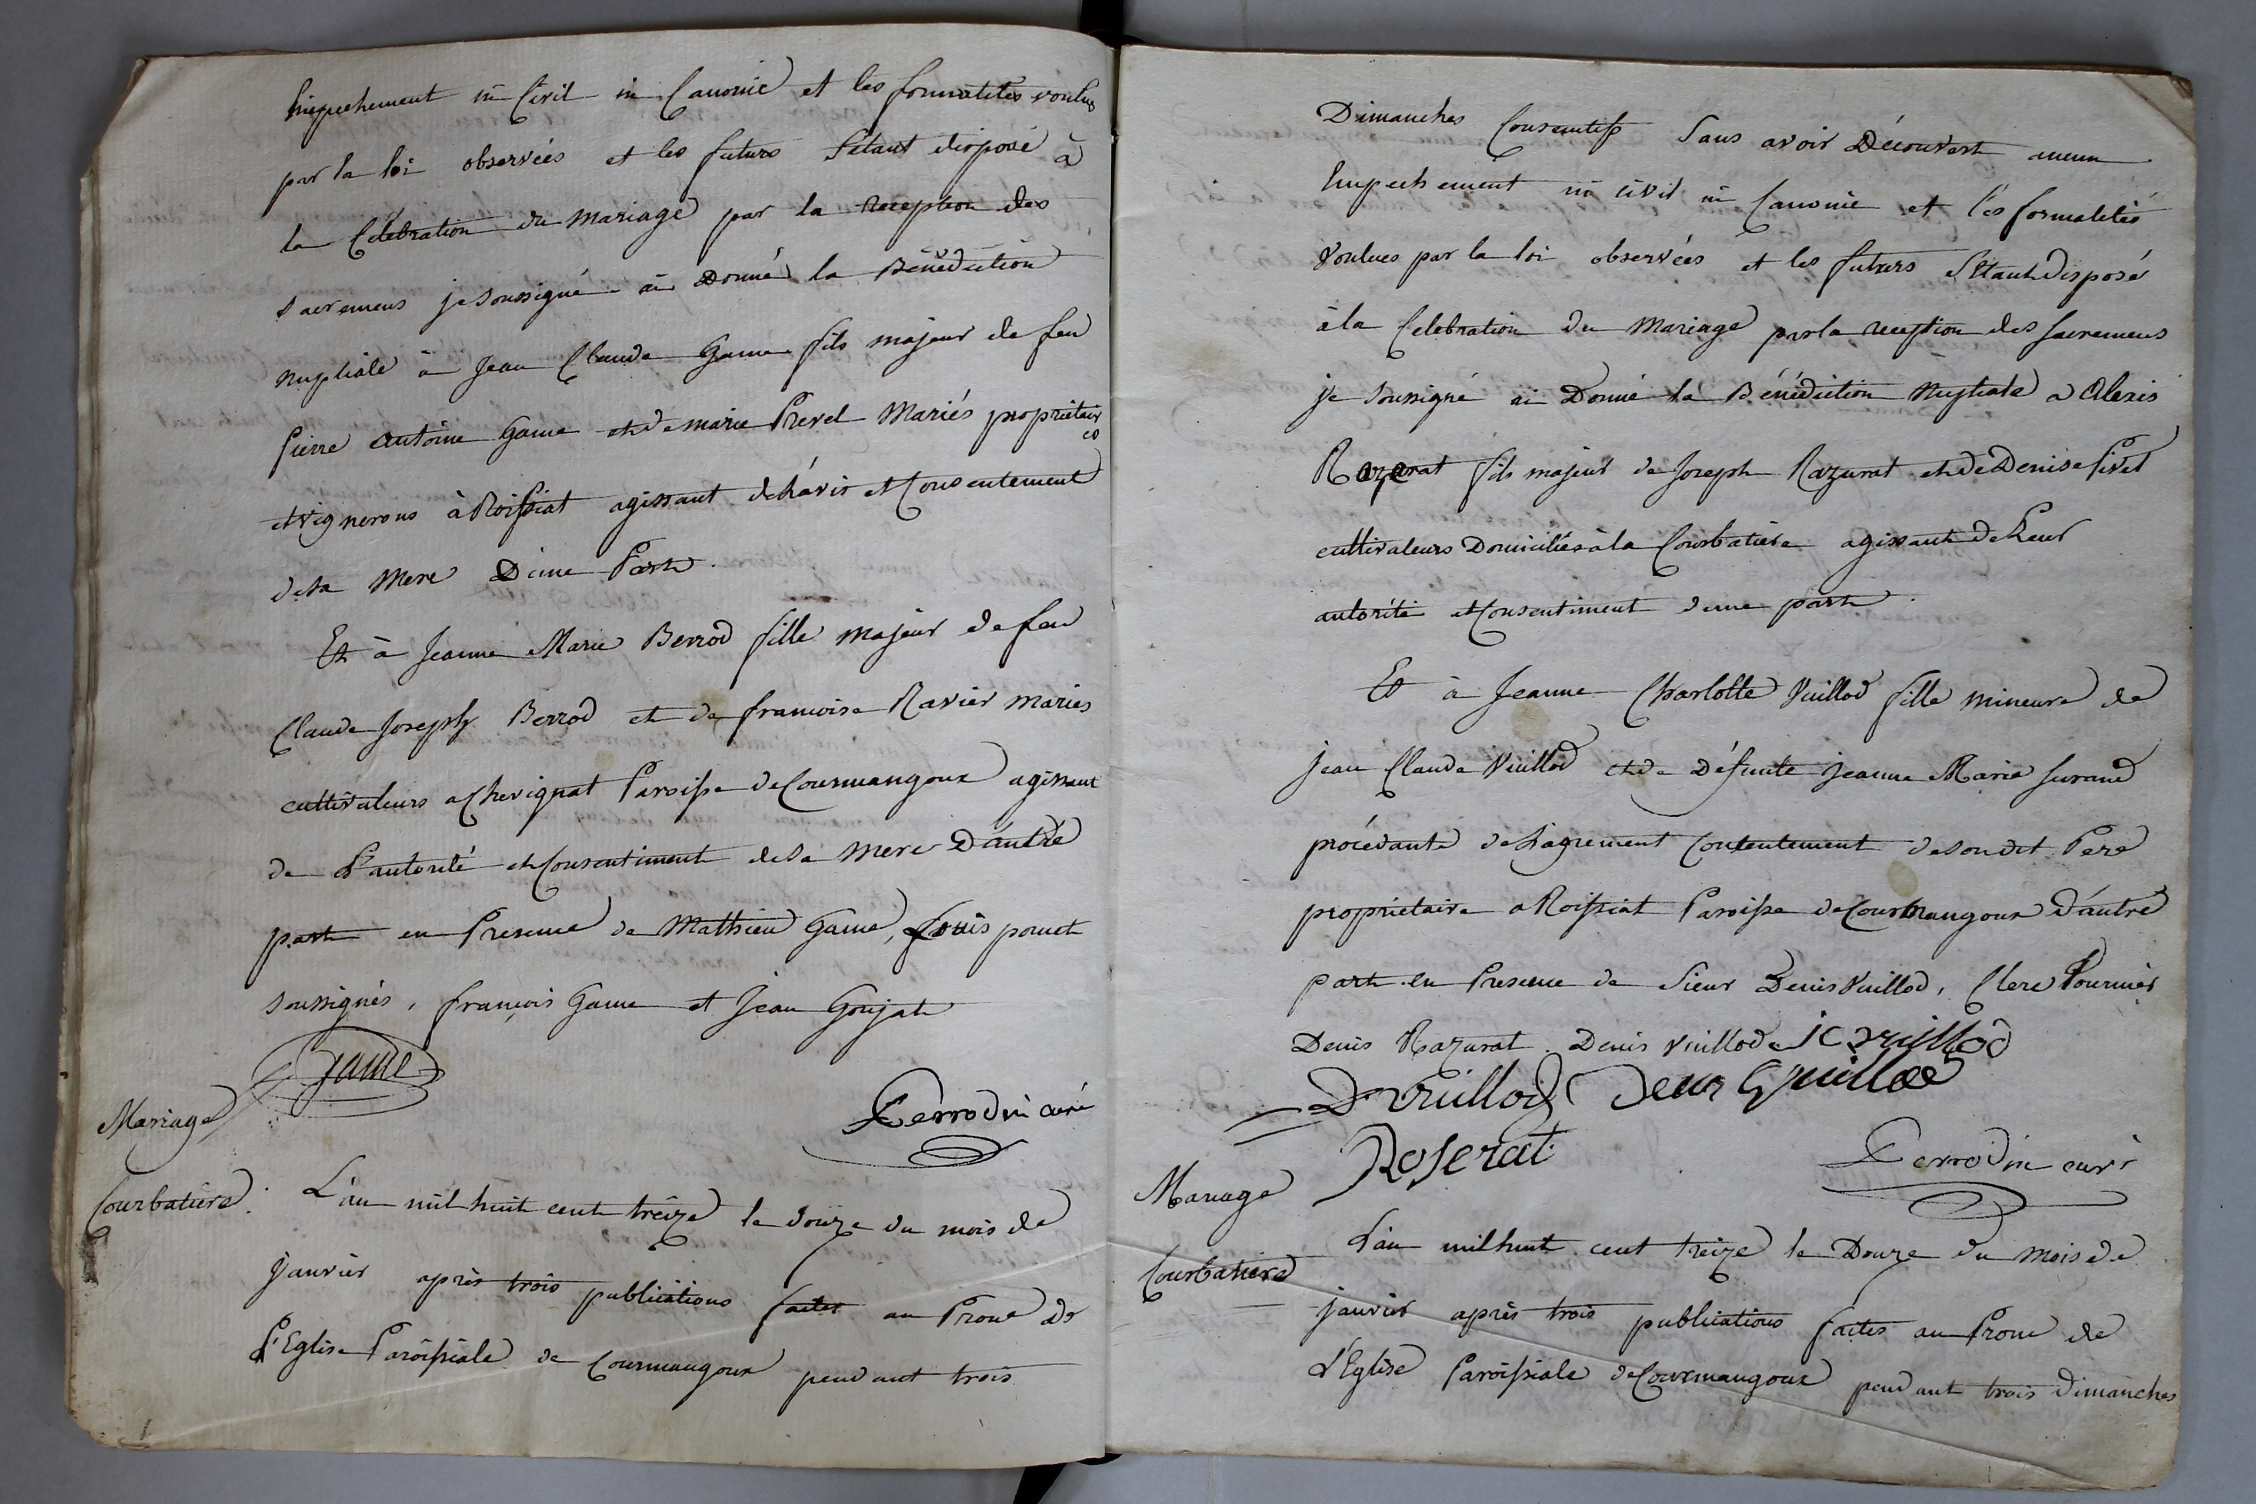 Empechement ni Civil ni Canonic et les formalités voulues
par la loi observées et les futurs s'etant disposé à
la Célébration du Mariage par la Reception des
sacremens je soussigné ai Donné la Bénédiction
nuptiale à Jean Claude Game fils majeur de feu
Pierre Antoine Game et de marie Prevel Mariés proprietair
es
et vignerons à Roissiat agissant de l'avis et Consentement
de sa Mere D'une Part.
Et à Jeanne Marie Berrod fille majeur de feu
Claude Joseph Berrod et de francoise Ravier mariés
cultivateurs a Chevignat Paroisse de Courmangoux agissant
de l'autorité et Consentiment de sa Mere D'autre
part en Presence de Mathieu Game, Louis ponet
soussignés, françois Game et Jean Goujat
Game
Perrodin curé
Mariage
Courbatiere.
L'an mil huit cent treize le douze du mois de
janvier après trois publications faites au Prone de
l'Eglise Paroissiale de Courmangoux pendant trois
Dimanches Consecutifs Sans avoir Découvert aucun
Empechement ni civil ni Canonic et les formalités
voulues par la loi observées et les futurs s'Etant Disposé
à la Celebration du Mariage par la reception des Sacremens
je soussigné ai Donné la Bénédiction Nuptiale a Alexis
Razurat fils majeur de Joseph Razurat et de Denise Pivet
cultivateurs Domiciliés à la Courbatière agissant de Leur
autorité et Consentiment d'une part.
Et à Jeanne Charlotte Vuillod fille mineure de
Jean Claude Vuillod et de Défunte Jeanne Marie Surand
procédante de L'agrement Contentement de son dit Pere
proprietaire a Roissiat Paroisse de Courmangoux D'autre
part en Presence de Sieur Denis Vuillod, Clere Fournier
Denis Razurat Denis Vuillod JC vuillod
D vuillod Denis Vuillod
Roserat
Perrodin curé
Mariage
Courbatiere
L'an mil huit cent treize le Douze du mois de
janvier après trois publications faites au Prone de
L'Eglise Paroissiale de Courmangoux pendant trois Dimanches